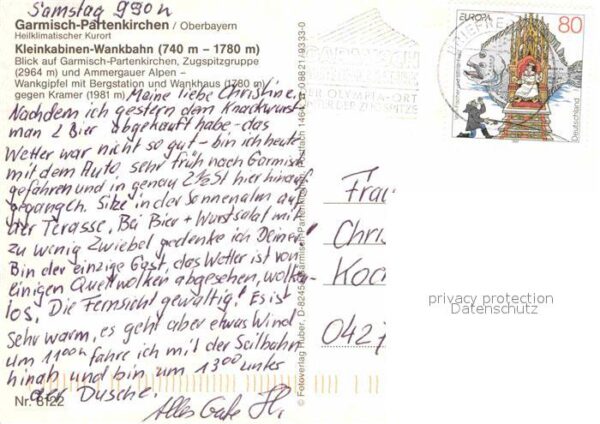 Samstag 9³⁰ h
Garmisch-Partenkirchen / Oberbayern
Heilklimatischer Kurort
Kleinkabinen-Wankbahn (740 m – 1780 m)
Blick auf Garmisch-Partenkirchen, Zugspitzgruppe
(2964 m) und Ammergauer Alpen –
Wankgipfel mit Bergstation und Wankhaus (1780 m)
gegen Kramer (1981 m)
Meine liebe Christine.
Nachdem ich gestern dem Knackwurst-
man 2 Bier abgekauft habe - das
Wetter war nicht so gut - bin ich heute
mit dem Auto sehr früh nach Garmisch
gefahren und in genau 2½ St hier hinauf
gegangen. Sitze in der Sonnenalm auf
der Terasse, Bei Bier + Wurstsalat mit
zu wenig Zwiebel gedenke ich Deiner!
Bin der einzige Gast, das Wetter ist von
einigen Quellwolken abgesehen, wolken-
los, Die Fernsicht gewaltig! Es ist
sehr warm, es geht aber etwas Wind
um 11⁰⁰ h fahre ich mit der Seilbahn
hinab und bin um 13⁰⁰ unter
der Dusche.
Alles Gute
Nr. 6122
© Fotoverlag Huber, D-8245 Garmisch-Partenkirchen, Postfach 1464, 08821/9333-0
GARMISCH
DER OLYMPIAORT
UNTER DER ZUGSPITZE
BRIEFE
EUROPA
80
Deutschland
Frau
Chris
Koc
042
privacy protection
Datenschutz